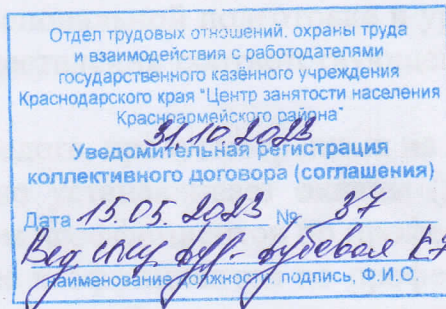 Отдел трудовых отношений, охраны труда
и взаимодействия с работодателями
государственного казённого учреждения
Краснодарского края "Центр занятости населения
Красноармейского района"
31.10.2023
Уведомительная регистрация
коллективного договора (соглашения)
Дата 15.05.2023 № 37
Вед
наименование должности, подпись, Ф.И.О.